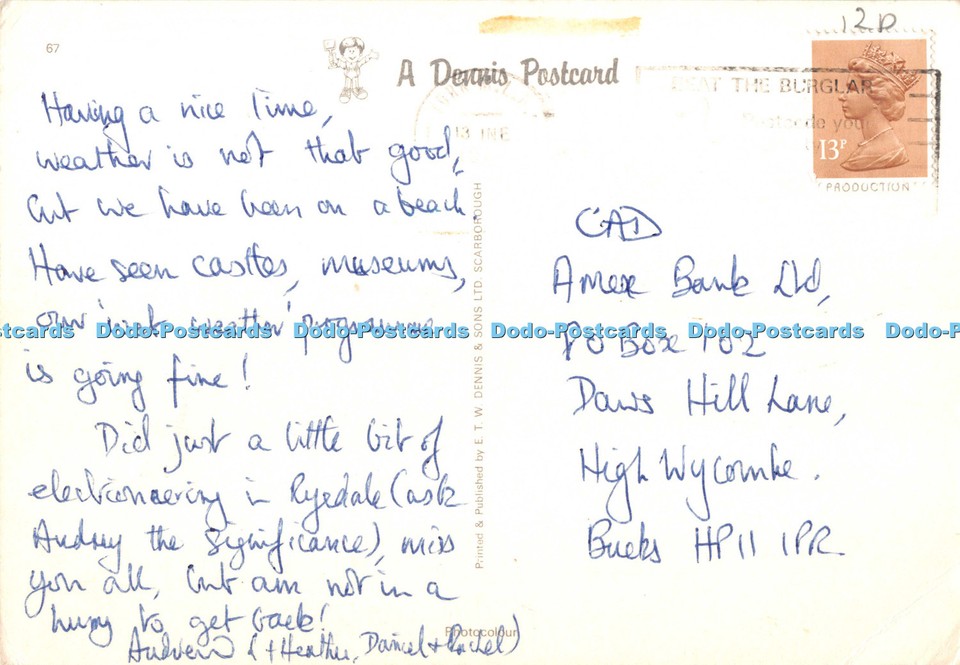 67
A Dennis Postcard
12p
BEAT THE BURGLAR
Postcode your
13P
PRODUCTION
13 JNE
Having a nice time,
weather is not that good,
but we have been on a beach.
Have seen castles, museums,
our 'wet weather' programme
is going fine!
Did just a little bit of
electioneering in Ryedale (ask
Audrey the significance), miss
you all, but am not in a
hurry to get back!
Andrew (+Heather, Daniel + Rachel)
Printed & Published by E. T. W. DENNIS & SONS LTD. SCARBOROUGH
Photocolour
CAD
Amex Bank Ltd,
PO Box 702
Daws Hill Lane,
High Wycombe.
Bucks HP11 1PR
Dodo-Postcards Dodo-Postcards Dodo-Postcards Dodo-Postcards